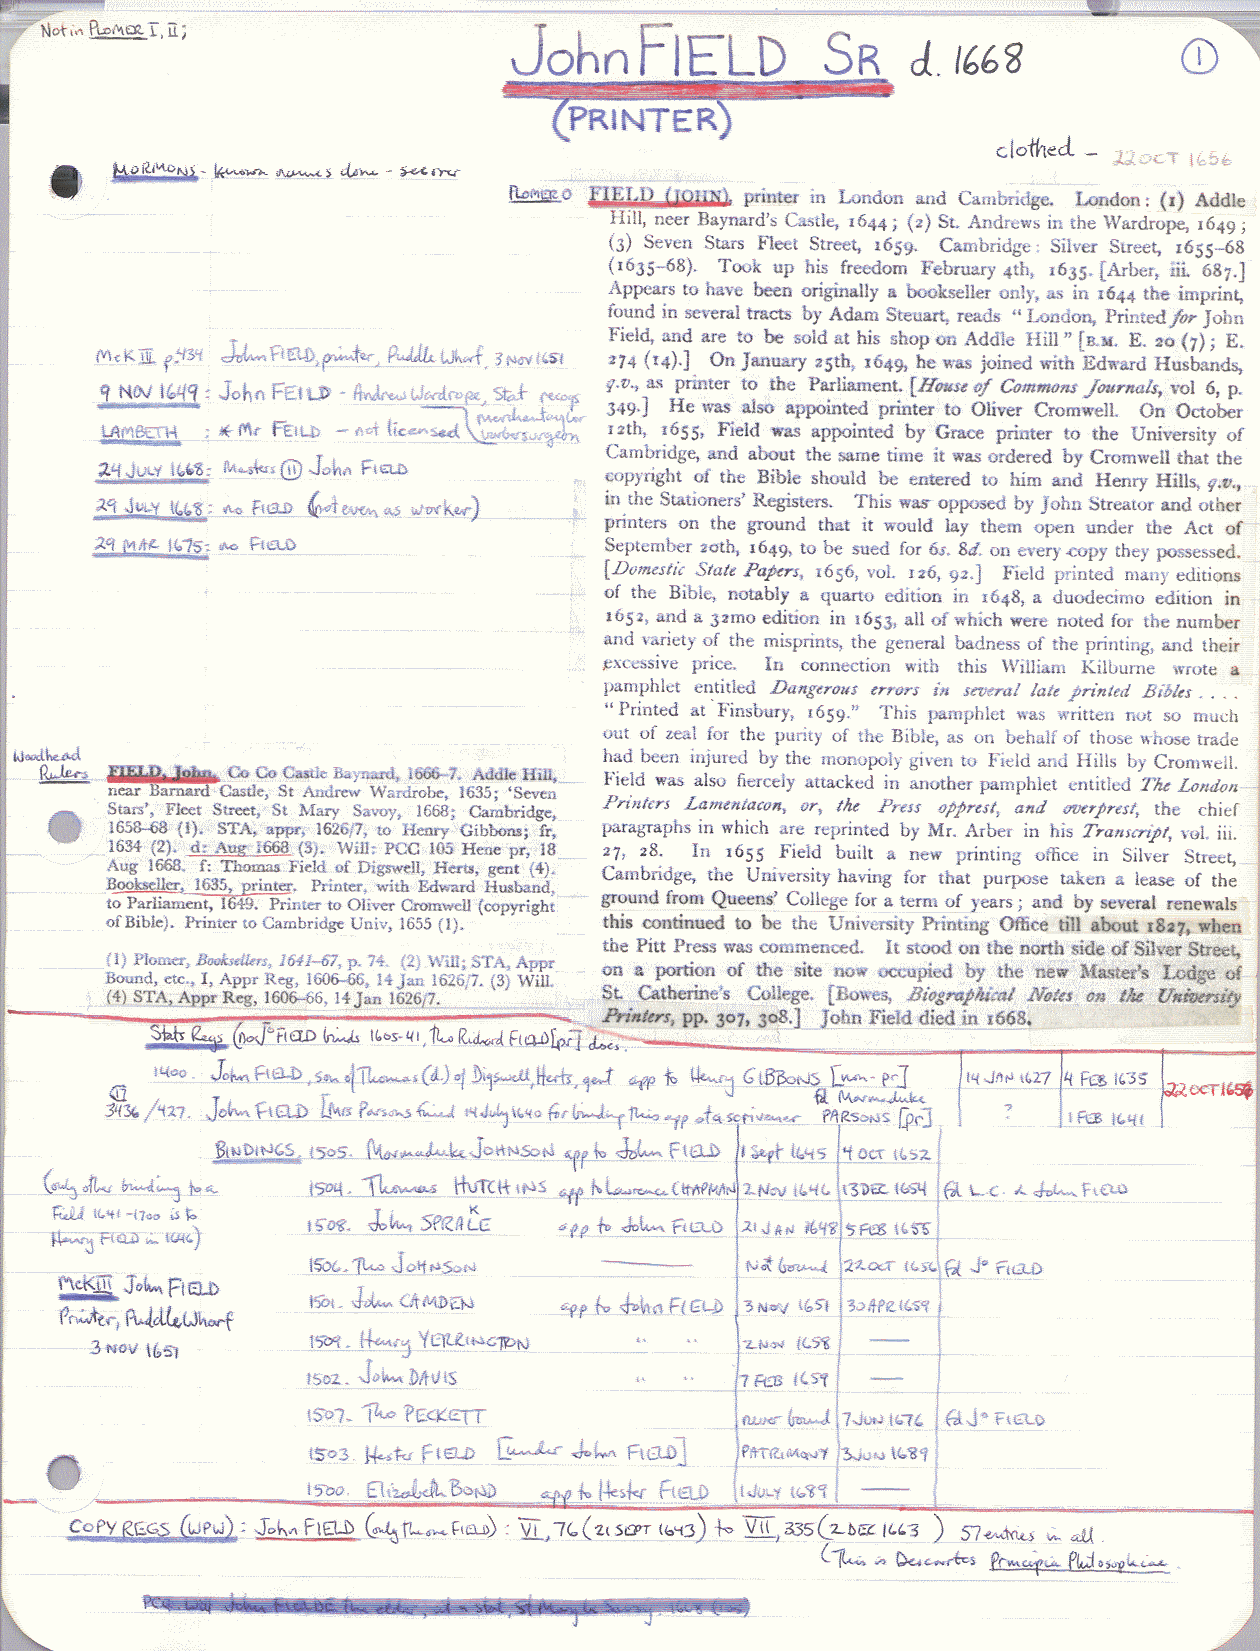 Not in PLOMER I, II;
John FIELD SR d. 1668
①
(PRINTER)
clothed - 22 OCT 1656
MORMONS - known names done - see over
PLOMER O
FIELD (JOHN), printer in London and Cambridge. London: (1) Addle
Hill, neer Baynard's Castle, 1644; (2) St. Andrews in the Wardrope, 1649;
(3) Seven Stars Fleet Street, 1659. Cambridge: Silver Street, 1655–68
(1635–68). Took up his freedom February 4th, 1635. [Arber, iii. 687.]
Appears to have been originally a bookseller only, as in 1644 the imprint,
found in several tracts by Adam Steuart, reads "London, Printed for John
Field, and are to be sold at his shop on Addle Hill" [B.M. E. 20 (7); E.
274 (14).] On January 25th, 1649, he was joined with Edward Husbands,
q.v., as printer to the Parliament. [House of Commons Journals, vol 6, p.
349.] He was also appointed printer to Oliver Cromwell. On October
12th, 1655, Field was appointed by Grace printer to the University of
Cambridge, and about the same time it was ordered by Cromwell that the
copyright of the Bible should be entered to him and Henry Hills, q.v.,
in the Stationers' Registers. This was opposed by John Streator and other
printers on the ground that it would lay them open under the Act of
September 20th, 1649, to be sued for 6s. 8d. on every copy they possessed.
[Domestic State Papers, 1656, vol. 126, 92.] Field printed many editions
of the Bible, notably a quarto edition in 1648, a duodecimo edition in
1652, and a 32mo edition in 1653, all of which were noted for the number
and variety of the misprints, the general badness of the printing, and their
excessive price. In connection with this William Kilburne wrote a
pamphlet entitled Dangerous errors in several late printed Bibles . . . .
"Printed at Finsbury, 1659." This pamphlet was written not so much
out of zeal for the purity of the Bible, as on behalf of those whose trade
had been injured by the monopoly given to Field and Hills by Cromwell.
Field was also fiercely attacked in another pamphlet entitled The London
Printers Lamentacon, or, the Press opprest, and overprest, the chief
paragraphs in which are reprinted by Mr. Arber in his Transcript, vol. iii.
27, 28. In 1655 Field built a new printing office in Silver Street,
Cambridge, the University having for that purpose taken a lease of the
ground from Queens' College for a term of years; and by several renewals
this continued to be the University Printing Office till about 1827, when
the Pitt Press was commenced. It stood on the north side of Silver Street,
on a portion of the site now occupied by the new Master's Lodge of
St. Catherine's College. [Bowes, Biographical Notes on the University
Printers, pp. 307, 308.] John Field died in 1668.
McK III p.434 John FIELD, printer, Puddle Wharf, 3 NOV 1651
9 NOV 1649: John FEILD - Andrew Wardrope, Stat recogs
merchantaylor
barbersurgeon
LAMBETH : * Mr FEILD - not licensed
24 JULY 1668: Masters ⑪ John FIELD
29 JULY 1668: no FIELD (not even as worker)
29 MAR 1675: no FIELD
Woodhead
Rulers
FIELD, John. Co Co Castle Baynard, 1666–7. Addle Hill,
near Barnard Castle, St Andrew Wardrobe, 1635; 'Seven
Stars', Fleet Street, St Mary Savoy, 1668; Cambridge,
1658–68 (1). STA, appr, 1626/7, to Henry Gibbons; fr,
1634 (2). d: Aug 1668 (3). Will: PCC 105 Hene pr, 18
Aug 1668. f: Thomas Field of Digswell, Herts, gent (4).
Bookseller, 1635, printer. Printer, with Edward Husband,
to Parliament, 1649. Printer to Oliver Cromwell (copyright
of Bible). Printer to Cambridge Univ, 1655 (1).
(1) Plomer, Booksellers, 1641–67, p. 74. (2) Will; STA, Appr
Bound, etc., I, Appr Reg, 1606–66, 14 Jan 1626/7. (3) Will.
(4) STA, Appr Reg, 1606–66, 14 Jan 1626/7.
Stats Regs (no Jº FIELD binds 1605-41, tho Richard FIELD [pr] does.
1400. John FIELD, son of Thomas (d.) of Digswell, Herts, gent app to Henry GIBBONS [non-pr] 14 JAN 1627 4 FEB 1635 22 OCT 1656
II
3436/427. John FIELD [Mrs Parsons fined 14 July 1640 for binding this app at a scrivener fd Marmaduke PARSONS [pr] ? 1 FEB 1641
BINDINGS. 1505. Marmaduke JOHNSON app to John FIELD 1 Sept 1645 4 OCT 1652
1504. Thomas HUTCHINS app to Lawrence CHAPMAN 2 NOV 1646 13 DEC 1654 fd L.C. & John FIELD
1508. John SPRAKLE app to John FIELD 21 JAN 1648 5 FEB 1655
1506. Tho JOHNSON —— Not bound 22 OCT 1656 fd Jº FIELD
1501. John CAMDEN app to John FIELD 3 NOV 1651 30 APR 1659
1509. Henry YERRINGTON " " 2 NOV 1658 —
1502. John DAVIS " " 7 FEB 1659 —
1507. Tho PECKETT never bound 7 JUN 1676 fd Jº FIELD
1503. Hester FIELD [under John FIELD] PATRIMONY 3 JUN 1689
1500. Elizabeth BOND app to Hester FIELD 1 JULY 1689 —
(only other binding to a
Field 1641-1700 is to
Henry FIELD in 1646)
McK III John FIELD
Printer, Puddle Wharf
3 NOV 1651
COPY REGS (WPW): John FIELD (only the one FIELD): VI, 76 (21 SEPT 1643) to VII, 335 (2 DEC 1663) 57 entries in all.
(This is Descartes Principia Philosophiae.